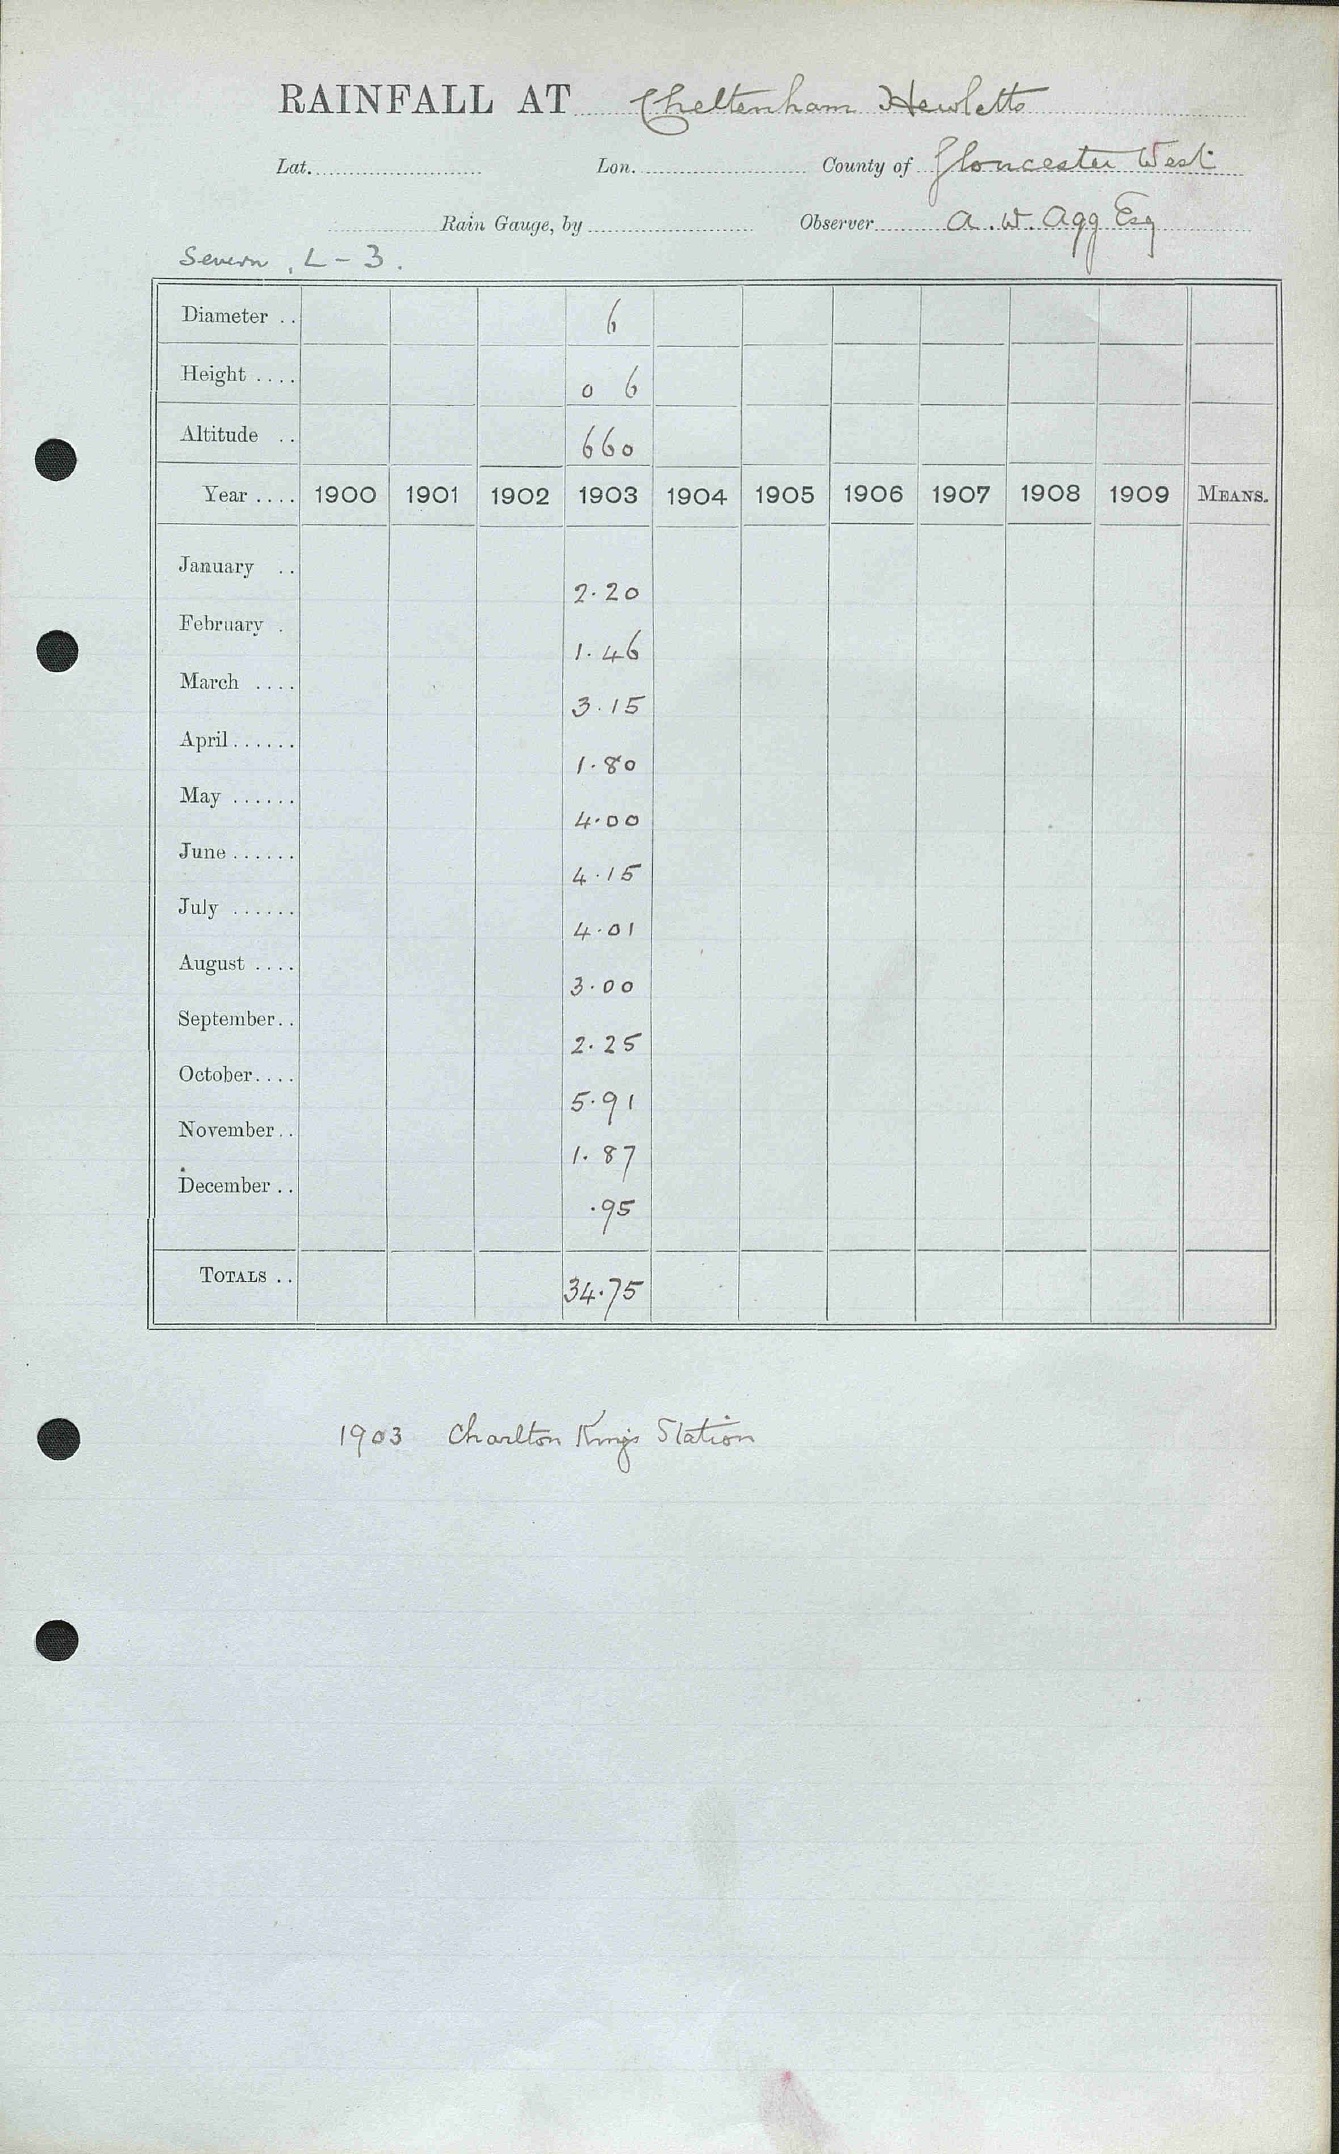 RAINFALL AT Cheltenham Hewletts
Lat. Lon. County of Gloucester West
Rain Gauge, by Observer A. W. Agg Esq
Severn, L - 3.
Diameter .. 6
Height .... 0 6
Altitude .. 660
Year .... 1900 1901 1902 1903 1904 1905 1906 1907 1908 1909 MEANS.
January .. 2.20
February . 1.46
March .... 3.15
April...... 1.80
May ...... 4.00
June ...... 4.15
July ...... 4.01
August .... 3.00
September.. 2.25
October.... 5.91
November.. 1.87
December .. .95
TOTALS .. 34.75
1903 Charlton Kings Station